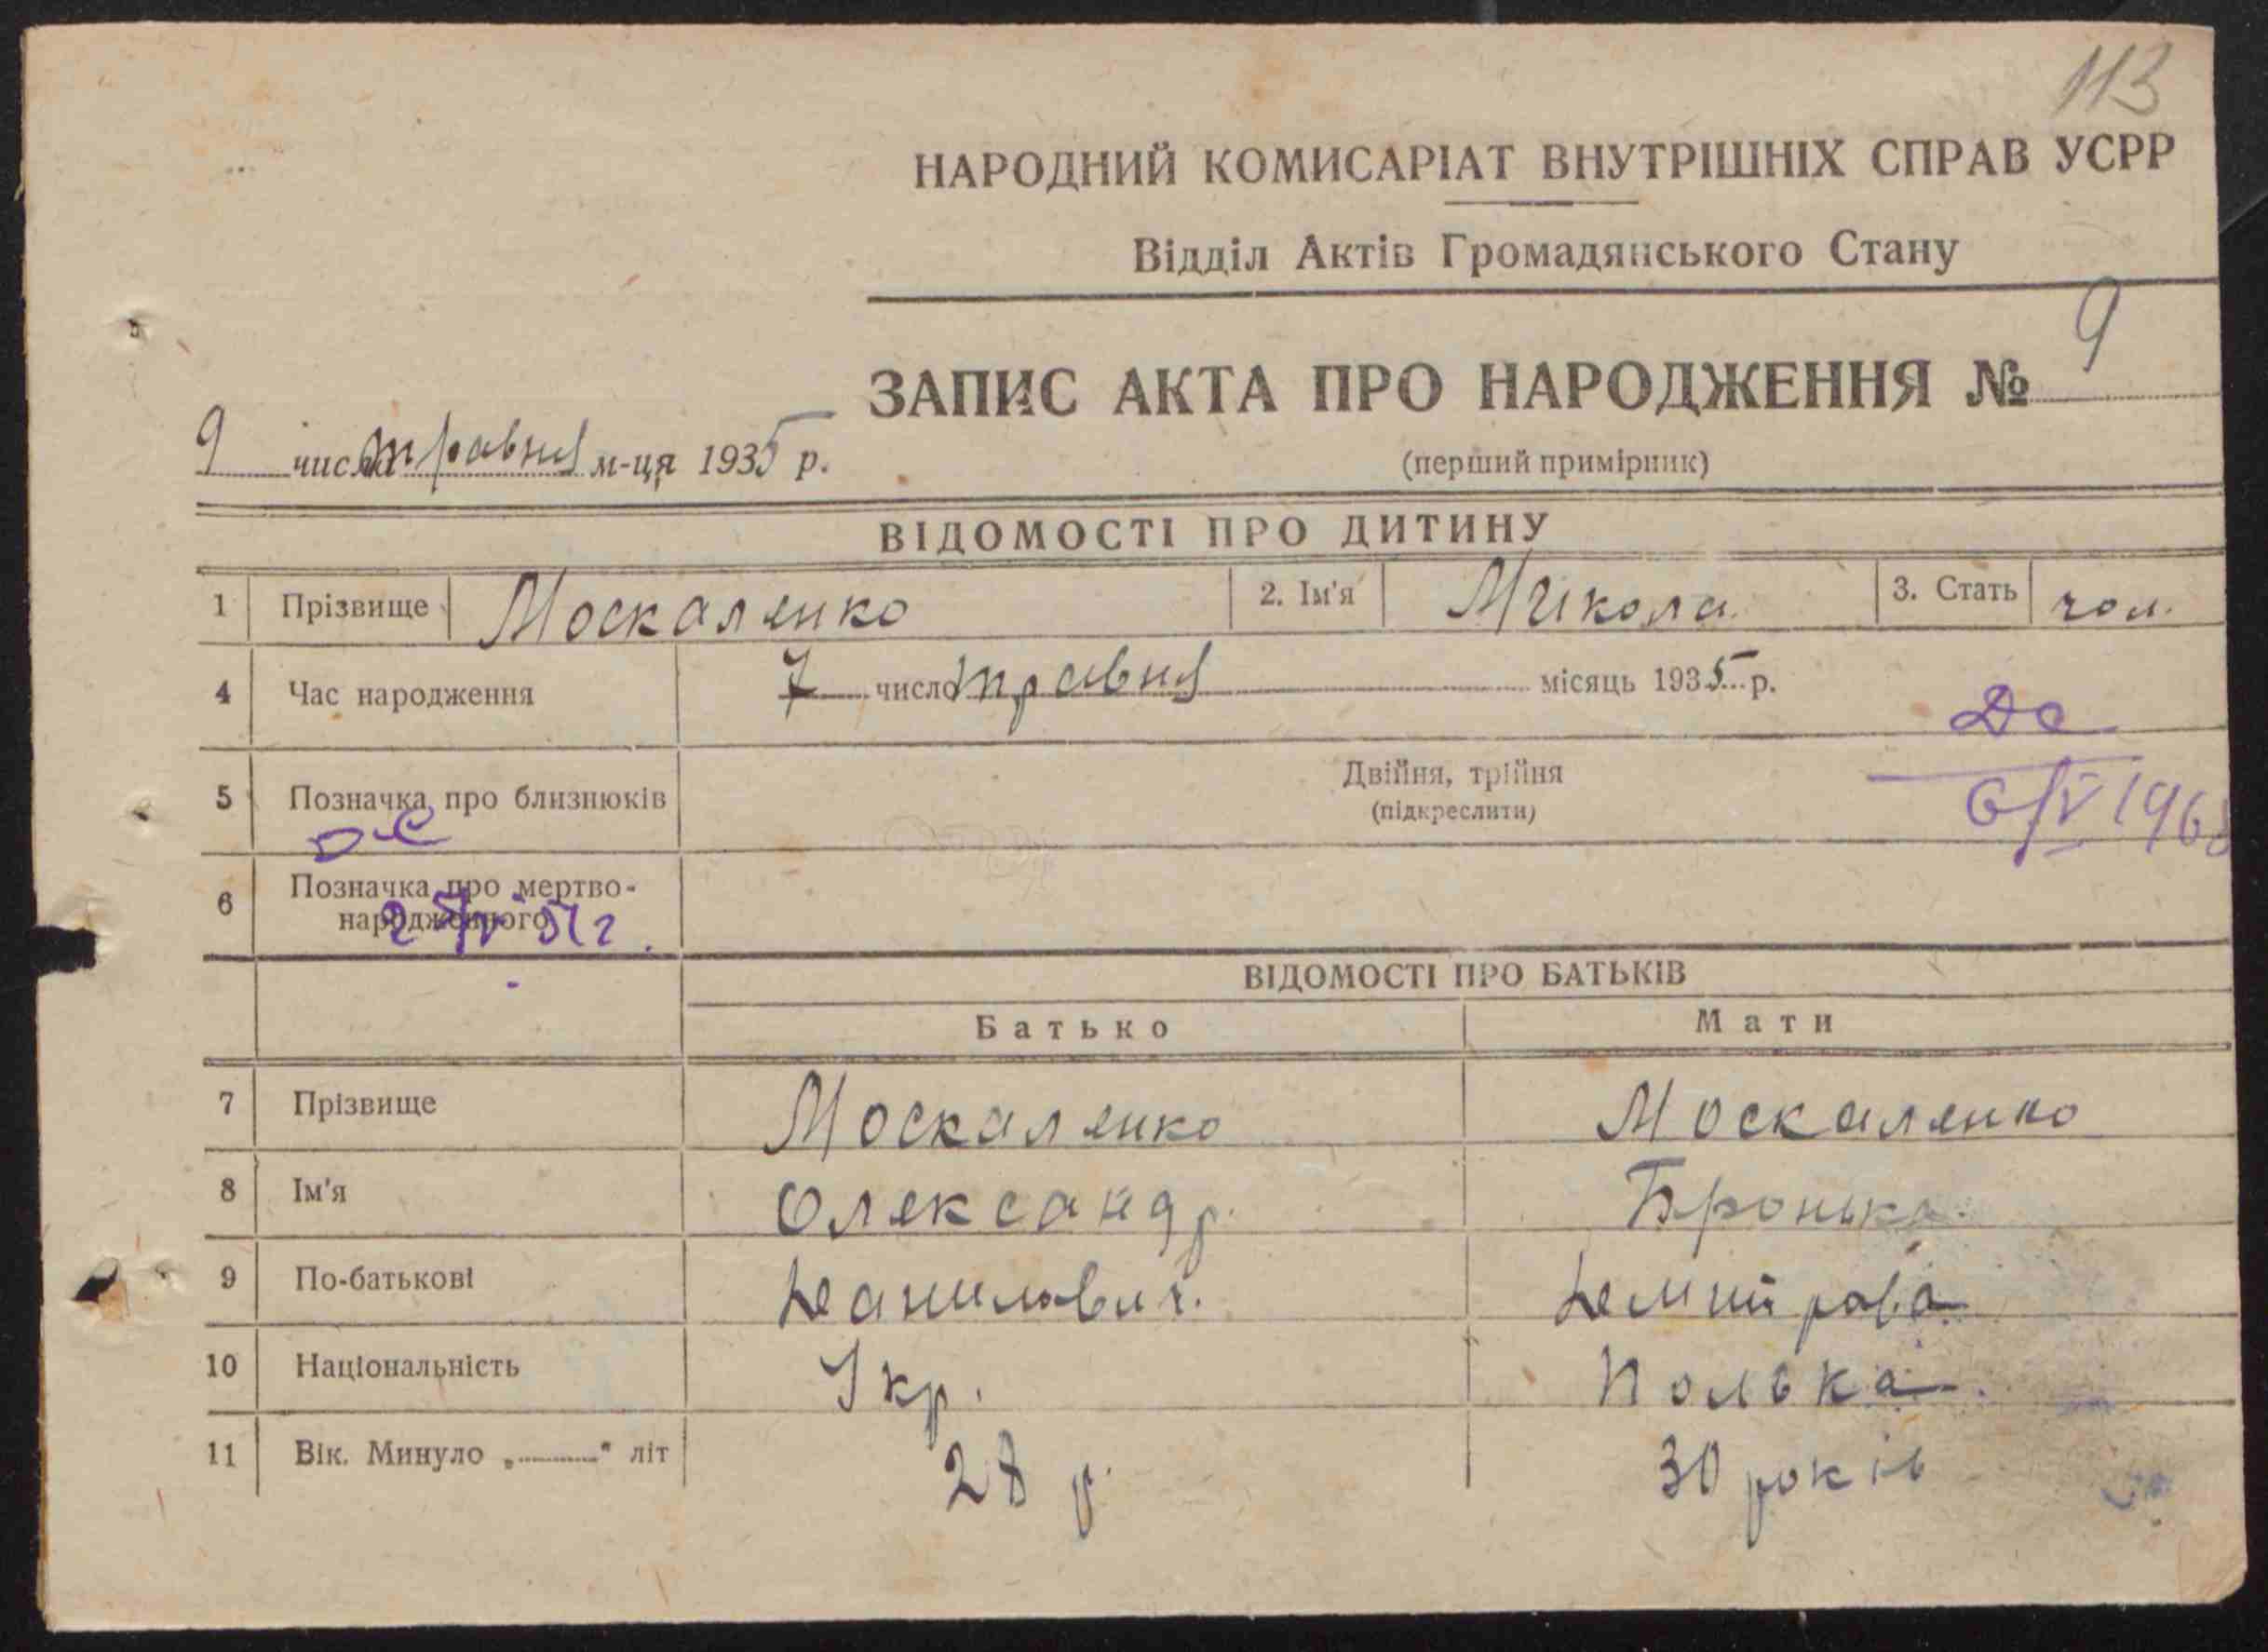 113
НАРОДНИЙ КОМИСАРІАТ ВНУТРІШНІХ СПРАВ УСРР
Відділ Актів Громадянського Стану
ЗАПИС АКТА ПРО НАРОДЖЕННЯ № 9
9 числа травня м-ця 1935 р.
(перший примірник)
ВІДОМОСТІ ПРО ДИТИНУ
1 Прізвище Москаленко 2. Ім'я Микола 3. Стать чол.
4 Час народження 7 число травня місяць 1935 р.
ДС
5 Позначка про близнюків Двійня, трійня
(підкреслити)
6/V 1968
ДС
6 Позначка про мертво-
народженого
ВІДОМОСТІ ПРО БАТЬКІВ
Батько Мати
7 Прізвище Москаленко Москаленко
8 Ім'я Олександр. Бронька.
9 По-батькові Данилович.
10 Національність Укр. Полька.
11 Вік. Минуло „ " літ 28 р. 30 років